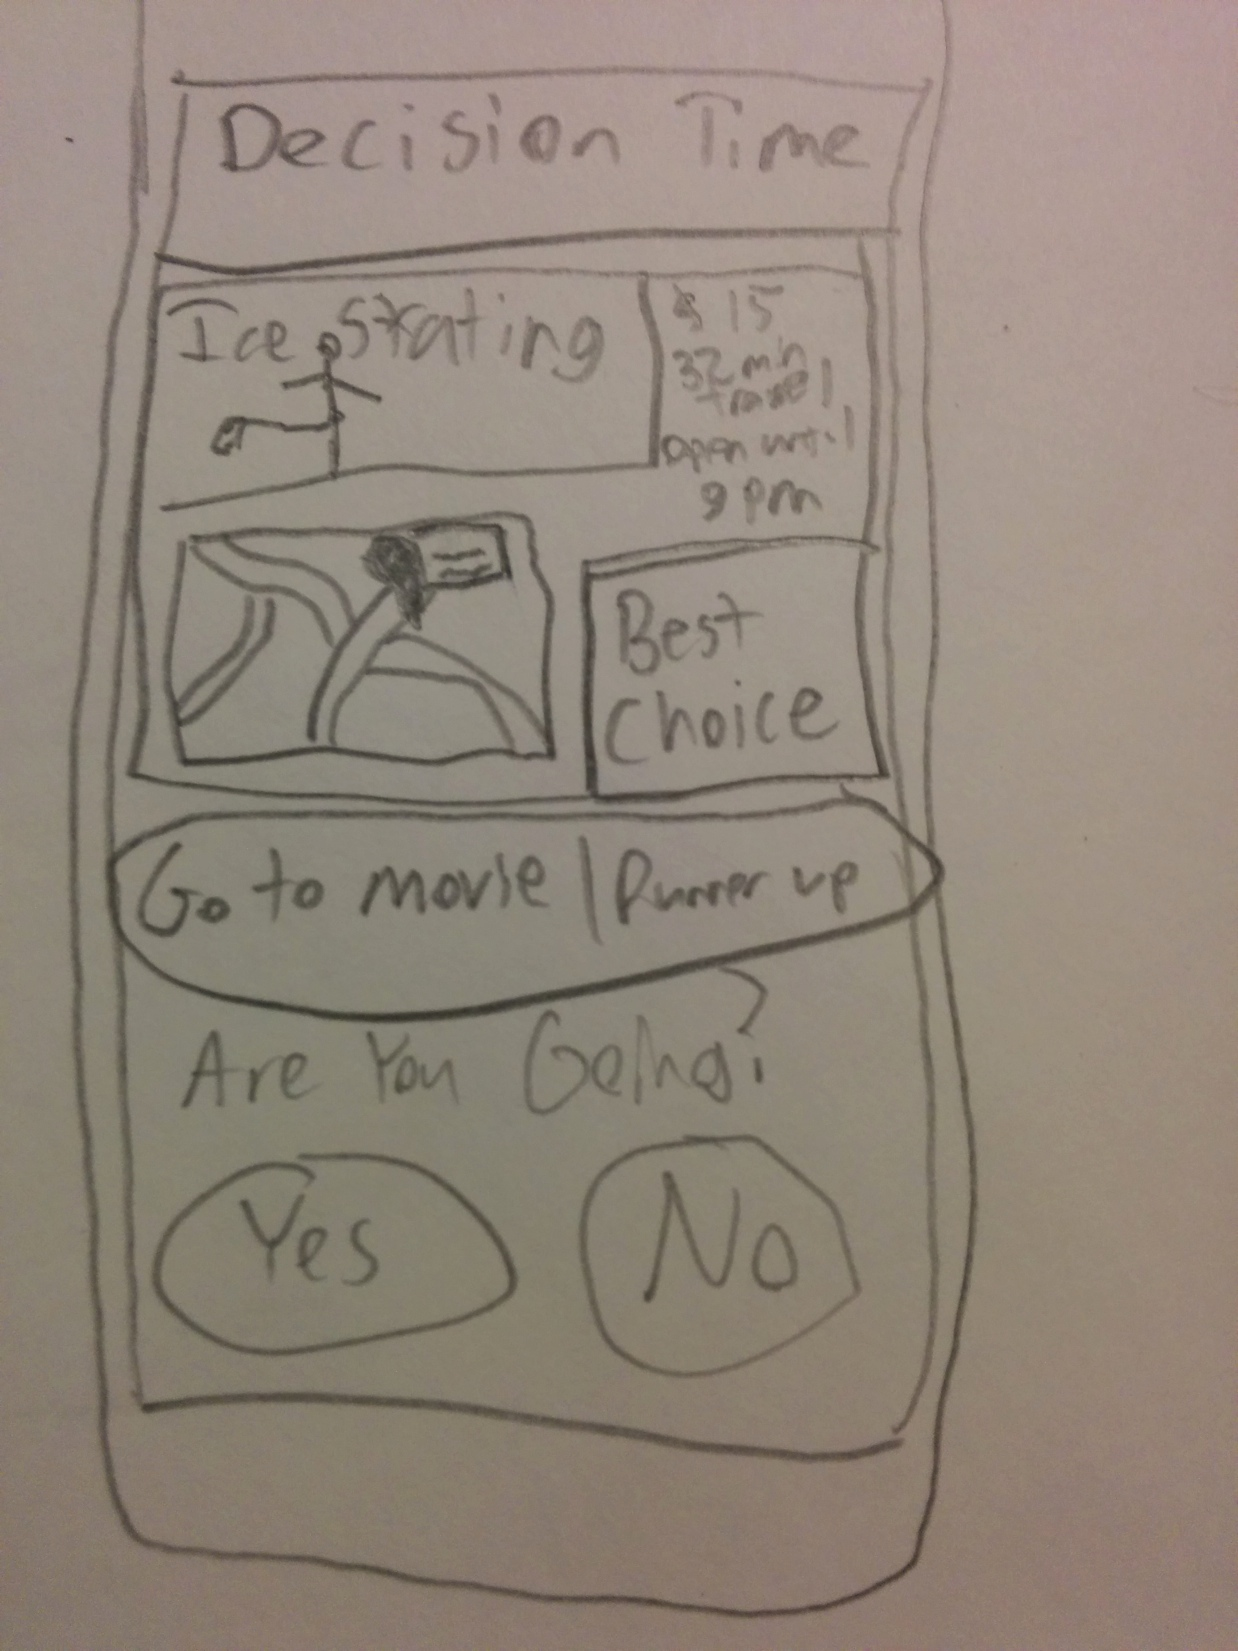 Decision Time
Ice Skating
$ 15
32 min
travel
open until
9 pm
Best
Choice
Go to movie | Runner up
Are You Going?
Yes
No